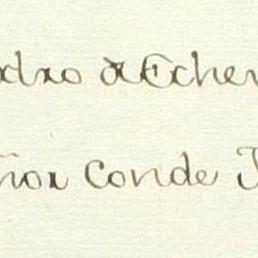 dro d Echev
ñor Conde